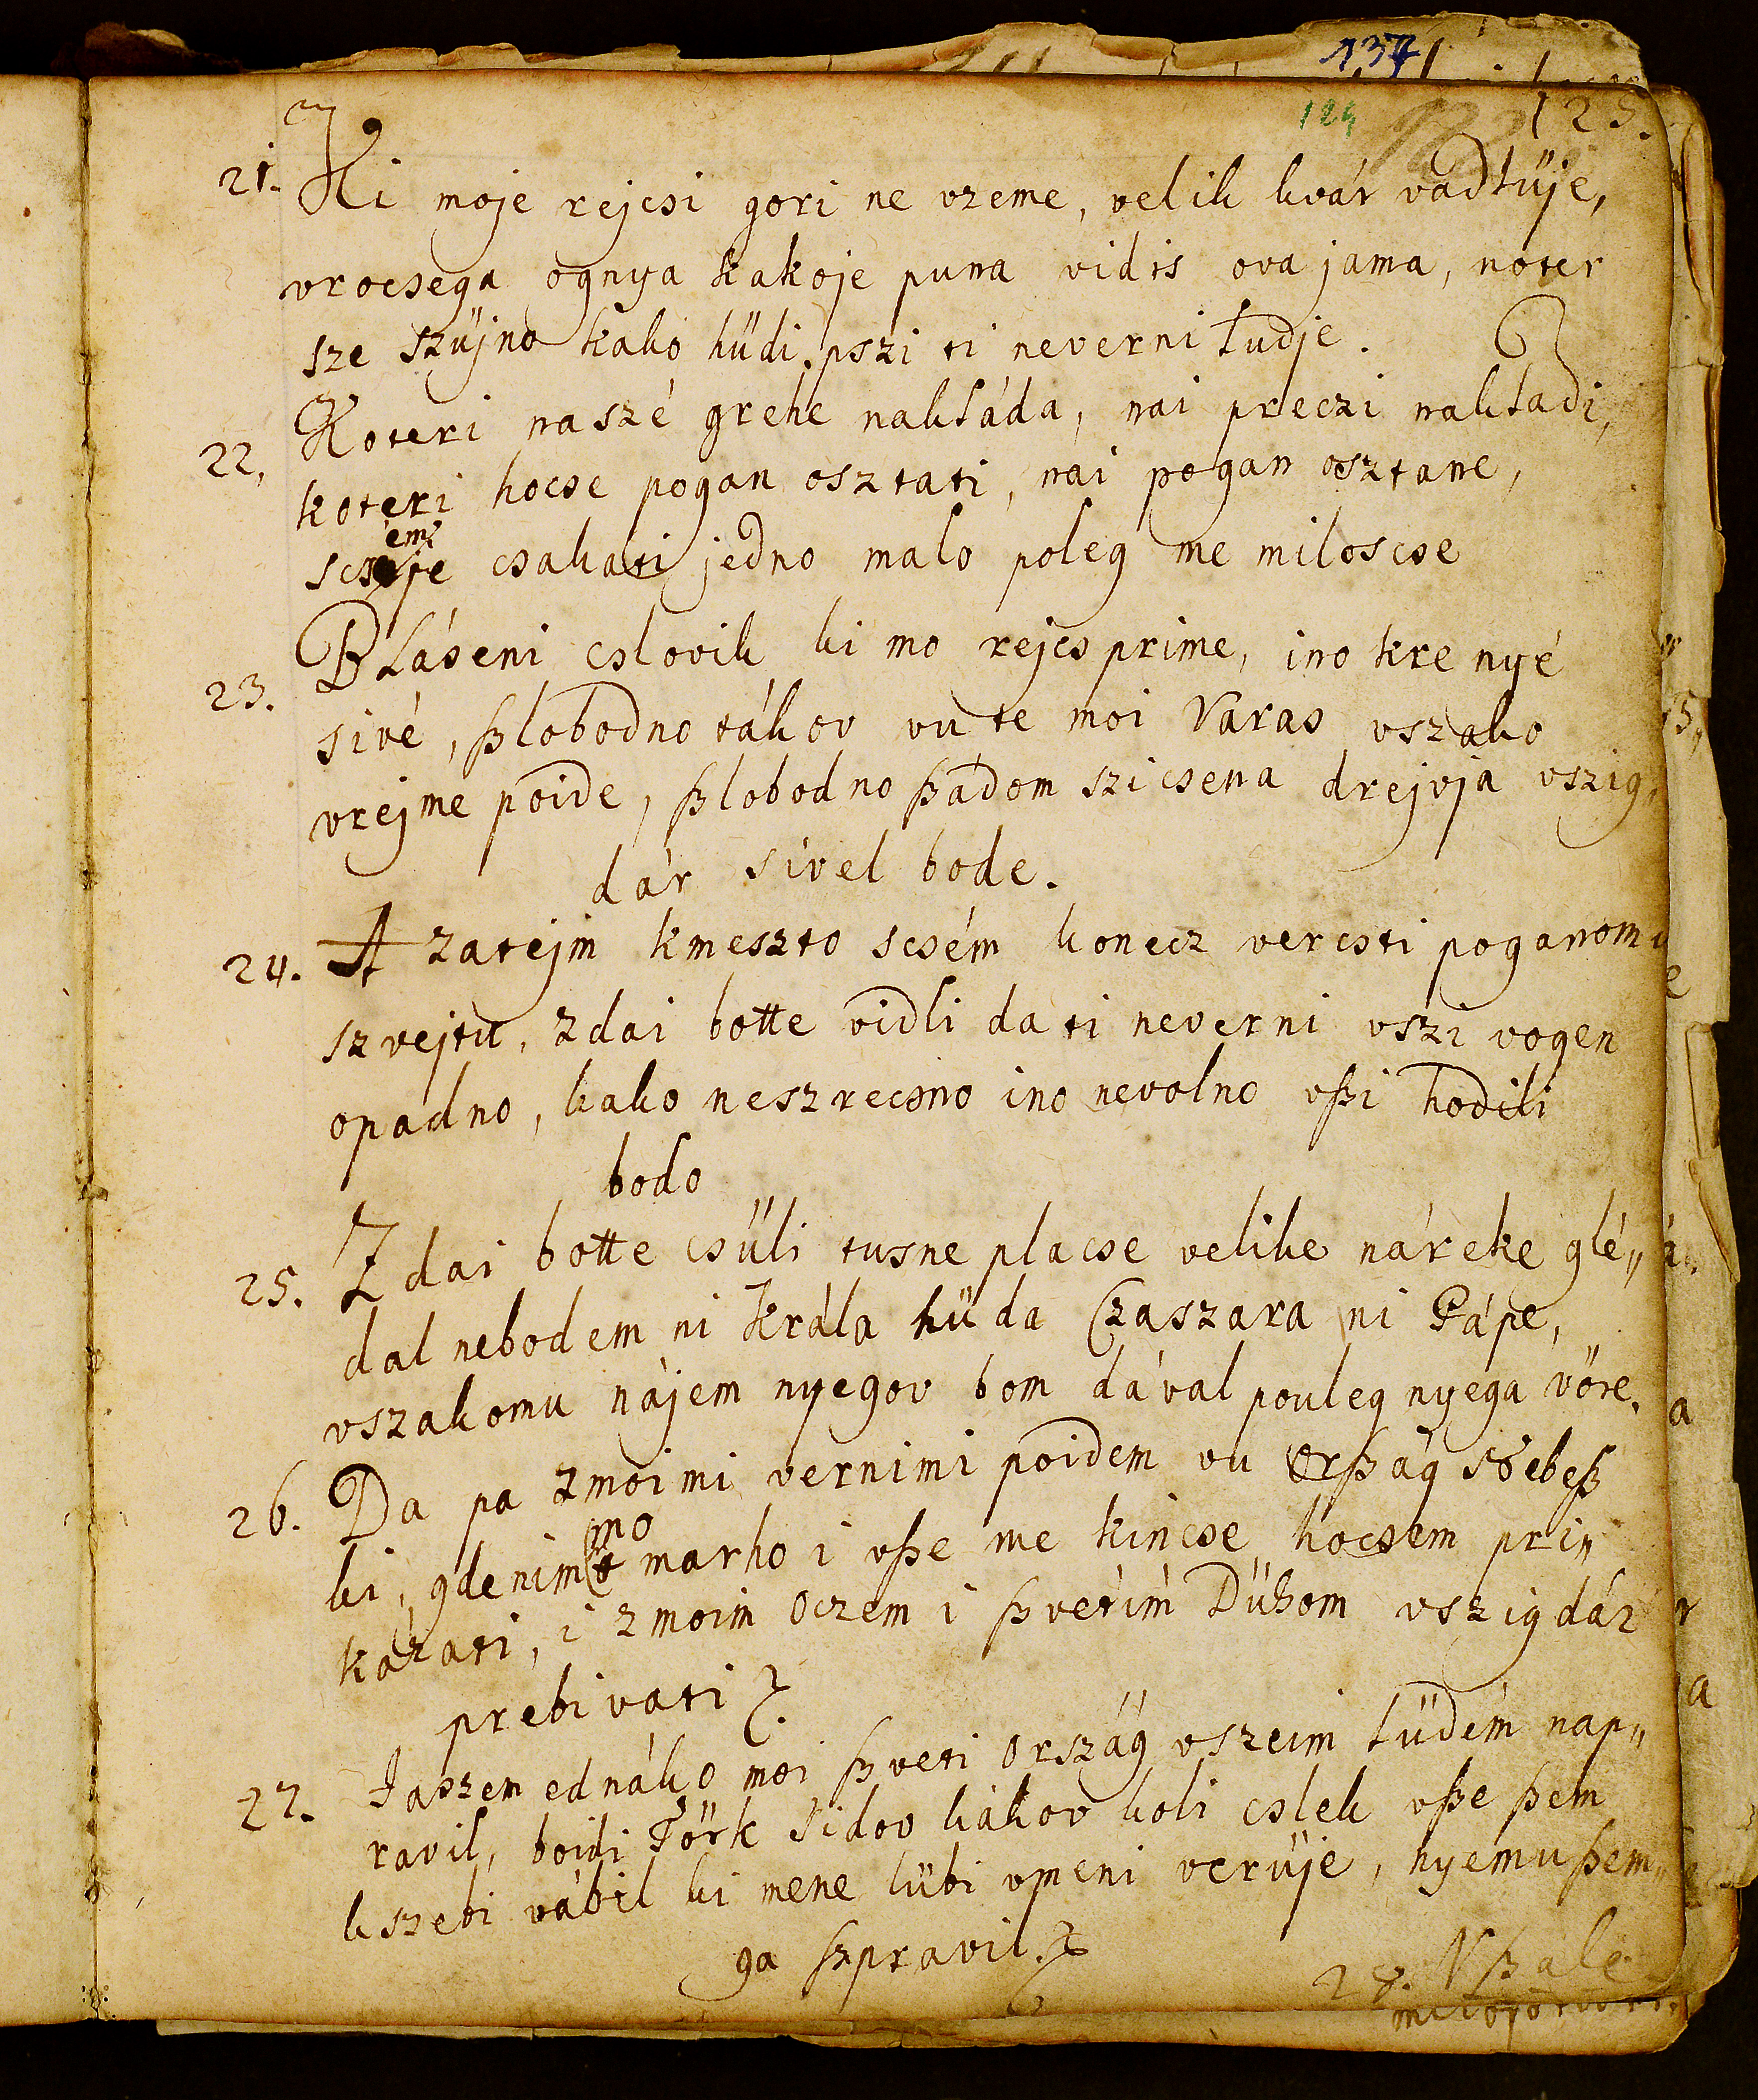 137
124 123.
21. Ki moje rejcsi gori ne vzeme, velik kvár vadlüje,
vrocsega ognya kakoje puna vidis ova jama, noter
sze szüjno kako hüdi pszi ti neverni ludje.
22. Koteri naszé grehe nakláda, nai preczi nakladi,
koteri hocse pogan osztati, nai pogan osztane,
scsém csakati jedno malo poleg me miloscse
23. Bláseni cslovik ki mo rejcs prime, ino kre nyé
sivé, ßlobodno tákov vu te moi Varas vszako
vrejme poide, ßlobodno ßádom szicsena drejvja vszig,
dár sivel bode.
24. A zatejm kmeszto scsém konecz vercsti poganomu
szvejtu, zdai botte vidli da ti neverni vszi vogen
opadno, kako neszrecsno ino nevolno vßi hodili
bodo
25. Zdai botte csüli tusne placse velike náreke glé„
dal nebodem ni Krála hüda Czaszara ni Pápe,
vszakomu nájem nyegov bom dával pouleg nyega vöre.
26. Da pa zmoimi vernimi poidem vu Orßág Nebeß
ki, gdenim mo marho i vße me kincse hocsem pri„
kázati, i zmoim Oczem i ßvetim Dühom vszigdár
prebivati.
27. Jaszem ednáko moi ßveti Ország vszeim lüdém nap„
ravil, boidi Törk Sidov kákov koli cslek vße ßem
kszebi vábil ki mene lübi vmeni verüje, nyemu ßem„
ga szpravil.
28. Vßale